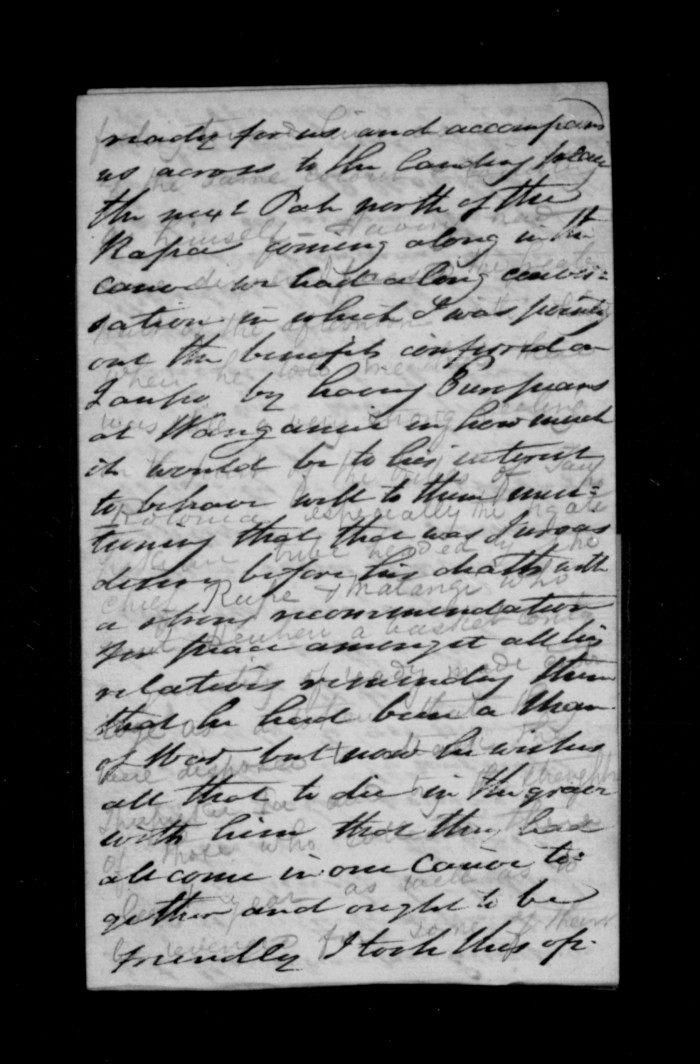 ready for us and accompany
us across to the landing place
the next Pah north of the
Kapa coming along in the
canoe we had a long conver=
sation in which I was pointing
out the benefits conferred on
Taupo by having Europeans
at Wanganui in how much
it would be to his interest
to behave well to them men=
tioning that that was
desire before his death with
a strong recommendation
for peace amongst all his
relatives reminding them
that he had been a Man
of War but now he wishes
all that to die in the grave
with him that they had
all come in one Canoe to=
gether and ought to be
friendly I took this op-